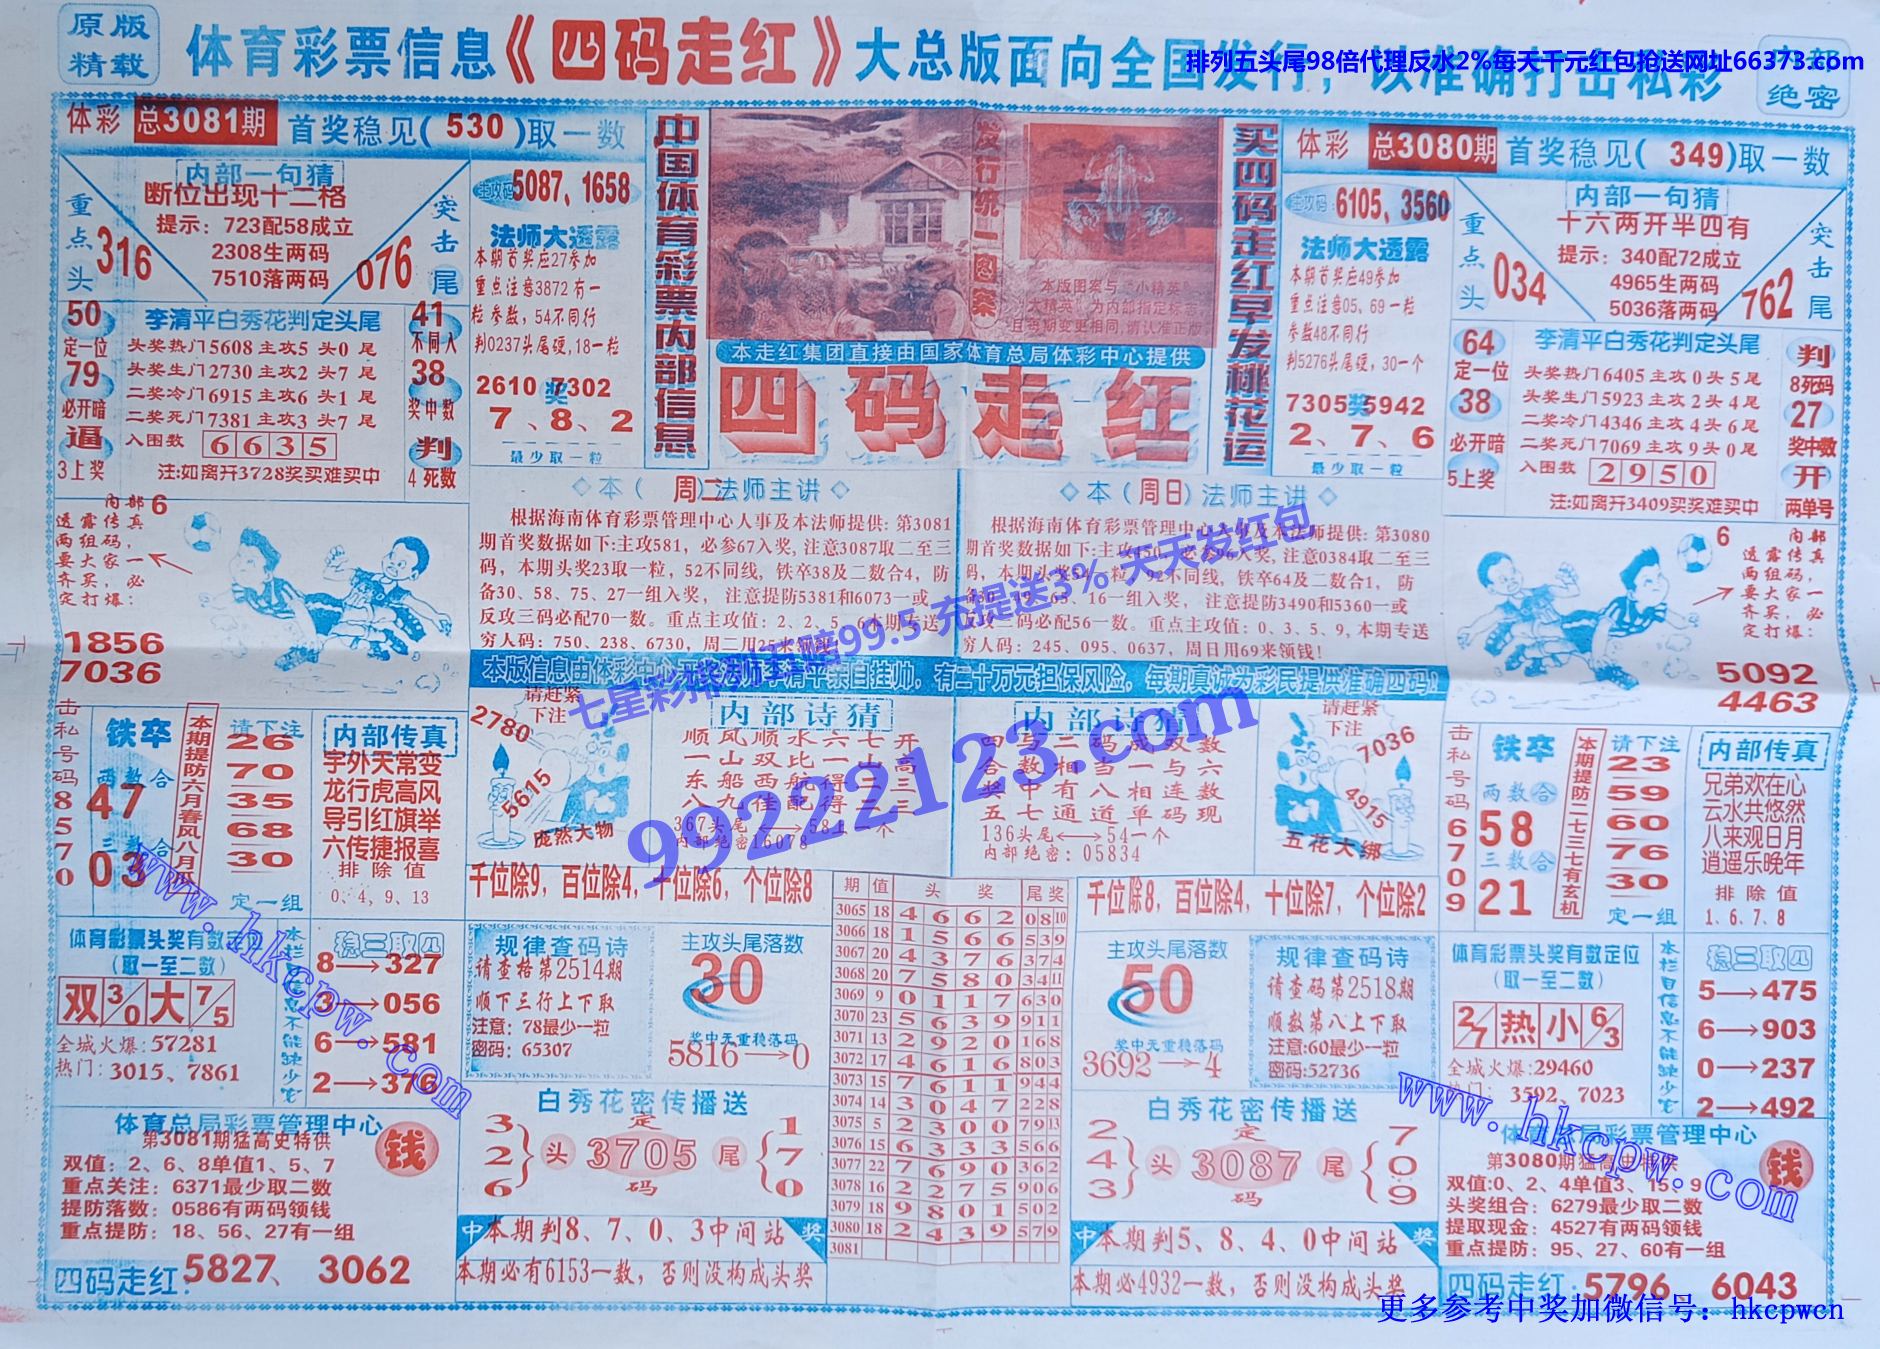 原版
精载
体育彩票信息《四码走红》大总版面向全国发行，以准确打击私彩
排列五头尾98倍代理反水2%每天千元红包抢送网址66373.com
绝密
体彩 总3081期 首奖稳见( 530 )取一数
内部一句猜
断位出现十二格
提示：723配58成立
2308生两码
7510落两码
重点头
316
突击尾
076
主攻码 5087、1658
法师大透露
本期首奖应27参加
重点注意3872有一
粒参数，54不同行
判0237头尾硬,18一粒
2610奖7302
7、8、2
最少取一粒
50
定一位
79
必开暗
逼
3上奖
李清平白秀花判定头尾
头奖热门5608主攻5头0尾
头奖生门2730主攻2头7尾
二奖冷门6915主攻6头1尾
二奖死门7381主攻3头7尾
入围数 6635
注:如离开3728奖买难买中
41
不同入
38
奖中数
判
4死数
中国体育彩票内部信息
发行统一图案
本版图案与“小精英”
“大精英”为内部指定标志
且每期变更相同,请认准正版
本走红集团直接由国家体育总局体彩中心提供
四码走红
买四码走红早发桃花运
体彩 总3080期 首奖稳见( 349)取一数
主攻码: 6105、3560
法师大透露
本期首奖应49参加
重点注意05、69一粒
参数48不同行
判5276头尾硬，30一个
7305奖5942
2、7、6
最少取一粒
内部一句猜
十六两开半四有
提示：340配72成立
4965生两码
5036落两码
重点头
034
突击尾
762
64
定一位
38
必开暗
5上奖
李清平白秀花判定头尾
头奖热门6405主攻0头5尾
头奖生门5923主攻2头4尾
二奖冷门4346主攻4头6尾
二奖死门7069主攻9头0尾
入围数 2950
注:如离开3409买奖难买中
判
8死码
27
奖中数
开
两单号
内部6
透露传真
两组码，
要大家一
齐买，必
定打爆：
1856
7036
◇本（ 周二）法师主讲◇
根据海南体育彩票管理中心人事及本法师提供: 第3081
期首奖数据如下:主攻581，必参67入奖, 注意3087取二至三
码，本期头奖23取一粒，52不同线，铁卒38及二数合4，防
备30、58、75、27一组入奖， 注意提防5381和6073一或
反攻三码必配70一数。重点主攻值：2、2、5、6本期专送
穷人码：750、238、6730，周二用25来领钱!
◇本（周日）法师主讲◇
根据海南体育彩票管理中心人事及本法师提供: 第3080
期首奖数据如下:主攻450，必参96入奖, 注意0384取二至三
码，本期头奖54一粒，92不同线，铁卒64及二数合1， 防
备30、49、65、16一组入奖， 注意提防3490和5360一或
反攻三码必配56一数。重点主攻值：0、3、5、9, 本期专送
穷人码：245、095、0637，周日用69来领钱!
七星彩排列五赔99.5 充提送3% 天天发红包
99222123.com
6
内部
透露传真
两组码，
要大家一
齐买，必
定打爆：
5092
4463
本版信息由体彩中心无极法师李清平亲自挂帅，有三十万元担保风险，每期真诚为彩民提供准确四码！
击私号码8570
铁卒
两数合
47
三数合
03
本期提防六月春风八月瓜
请下注
26
70
35
68
30
定一组
内部传真
宇外天常变
龙行虎高风
导引红旗举
六传捷报喜
排除值
0、4、9、13
请赶紧
下注
2780
5615
庞然大物
内部诗猜
顺风顺水六七开
一山双比一山高
东船西航得三三
八九佳配得二三
367头尾⟷58上一个
内部绝密16078
内部诗猜
四号二码成双数
合数相当一与六
奖中有八相连数
五七通道单码现
136头尾⟷54一个
内部绝密：05834
请赶紧
下注
7036
4915
五花大绑
击私号码6709
铁卒
两数合
58
三数合
21
本期提防二七三七有玄机
请下注
23
59
60
76
30
定一组
内部传真
兄弟欢在心
云水共悠然
八来观日月
逍遥乐晚年
排除值
1、6、7、8
千位除9，百位除4，十位除6，个位除8
千位除8，百位除4，十位除7，个位除2
期 值 头奖 尾奖
3065 18 4 6 6 2 0 8 10
3066 18 1 5 6 6 5 3 9
3067 20 4 3 7 6 3 7 4
3068 20 7 5 8 0 3 4 11
3069 9 0 1 1 7 6 3 0
3070 23 5 6 3 9 9 1 1
3071 13 2 9 2 0 1 6 8
3072 17 4 6 1 6 8 0 3
3073 15 7 6 1 1 9 4 4
3074 14 3 0 4 7 2 2 8
3075 5 2 3 0 0 7 9 13
3076 15 6 3 3 3 5 6 6
3077 22 7 6 9 0 3 6 2
3078 16 2 2 7 5 9 0 6
3079 18 9 8 0 1 5 0 2
3080 18 2 4 3 9 5 7 9
3081
体育彩票头奖有数定位
(取一至二数)
双 3/0 大 7/5
全城火爆：57281
热门：3015、7861
本栏目信息不能缺少它
稳三取四
8→327
3→056
6→581
2→376
规律查码诗
请查格第2514期
顺下三行上下取
注意：78最少一粒
密码：65307
主攻头尾落数
30
奖中无重稳落码
5816→0
主攻头尾落数
50
奖中无重稳落码
3692→4
规律查码诗
请查码第2518期
顺数第八上下取
注意:60最少一粒
密码:52736
体育彩票头奖有数定位
(取一至二数)
2/7 热 小 6/3
全城火爆:29460
热门： 3592、7023
本栏目信息不能缺少它
稳三取四
5→475
6→903
0→237
2→492
体育总局彩票管理中心
第3081期猛高史特供
双值：2、6、8单值1、5、7
重点关注：6371最少取二数
提防落数：0586有两码领钱
重点提防：18、56、27有一组
钱
四码走红: 5827、3062
白秀花密传播送
3 2 6 头 定 3705 码 尾 1 7 0
中 本期判8、7、0、3中间站 奖
本期必有6153一数，否则没构成头奖
白秀花密传播送
2 4 3 头 定 3087 码 尾 7 0 9
中 本期判5、8、4、0中间站 奖
本期必4932一数，否则没构成头奖
体育总局彩票管理中心
第3080期猛高史特供
双值:0、2、4单值3、15、9
头奖组合：6279最少取二数
提取现金：4527有两码领钱
重点提防：95、27、60有一组
钱
四码走红: 5796、6043
www.hkcpw.com
www.hkcpw.com
更多参考中奖加微信号：hkcpwcn